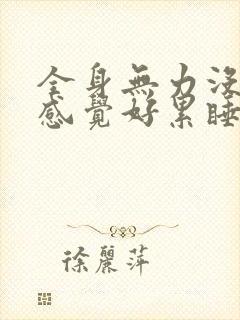 全身無力沒
感覺好累睡
徐麗萍